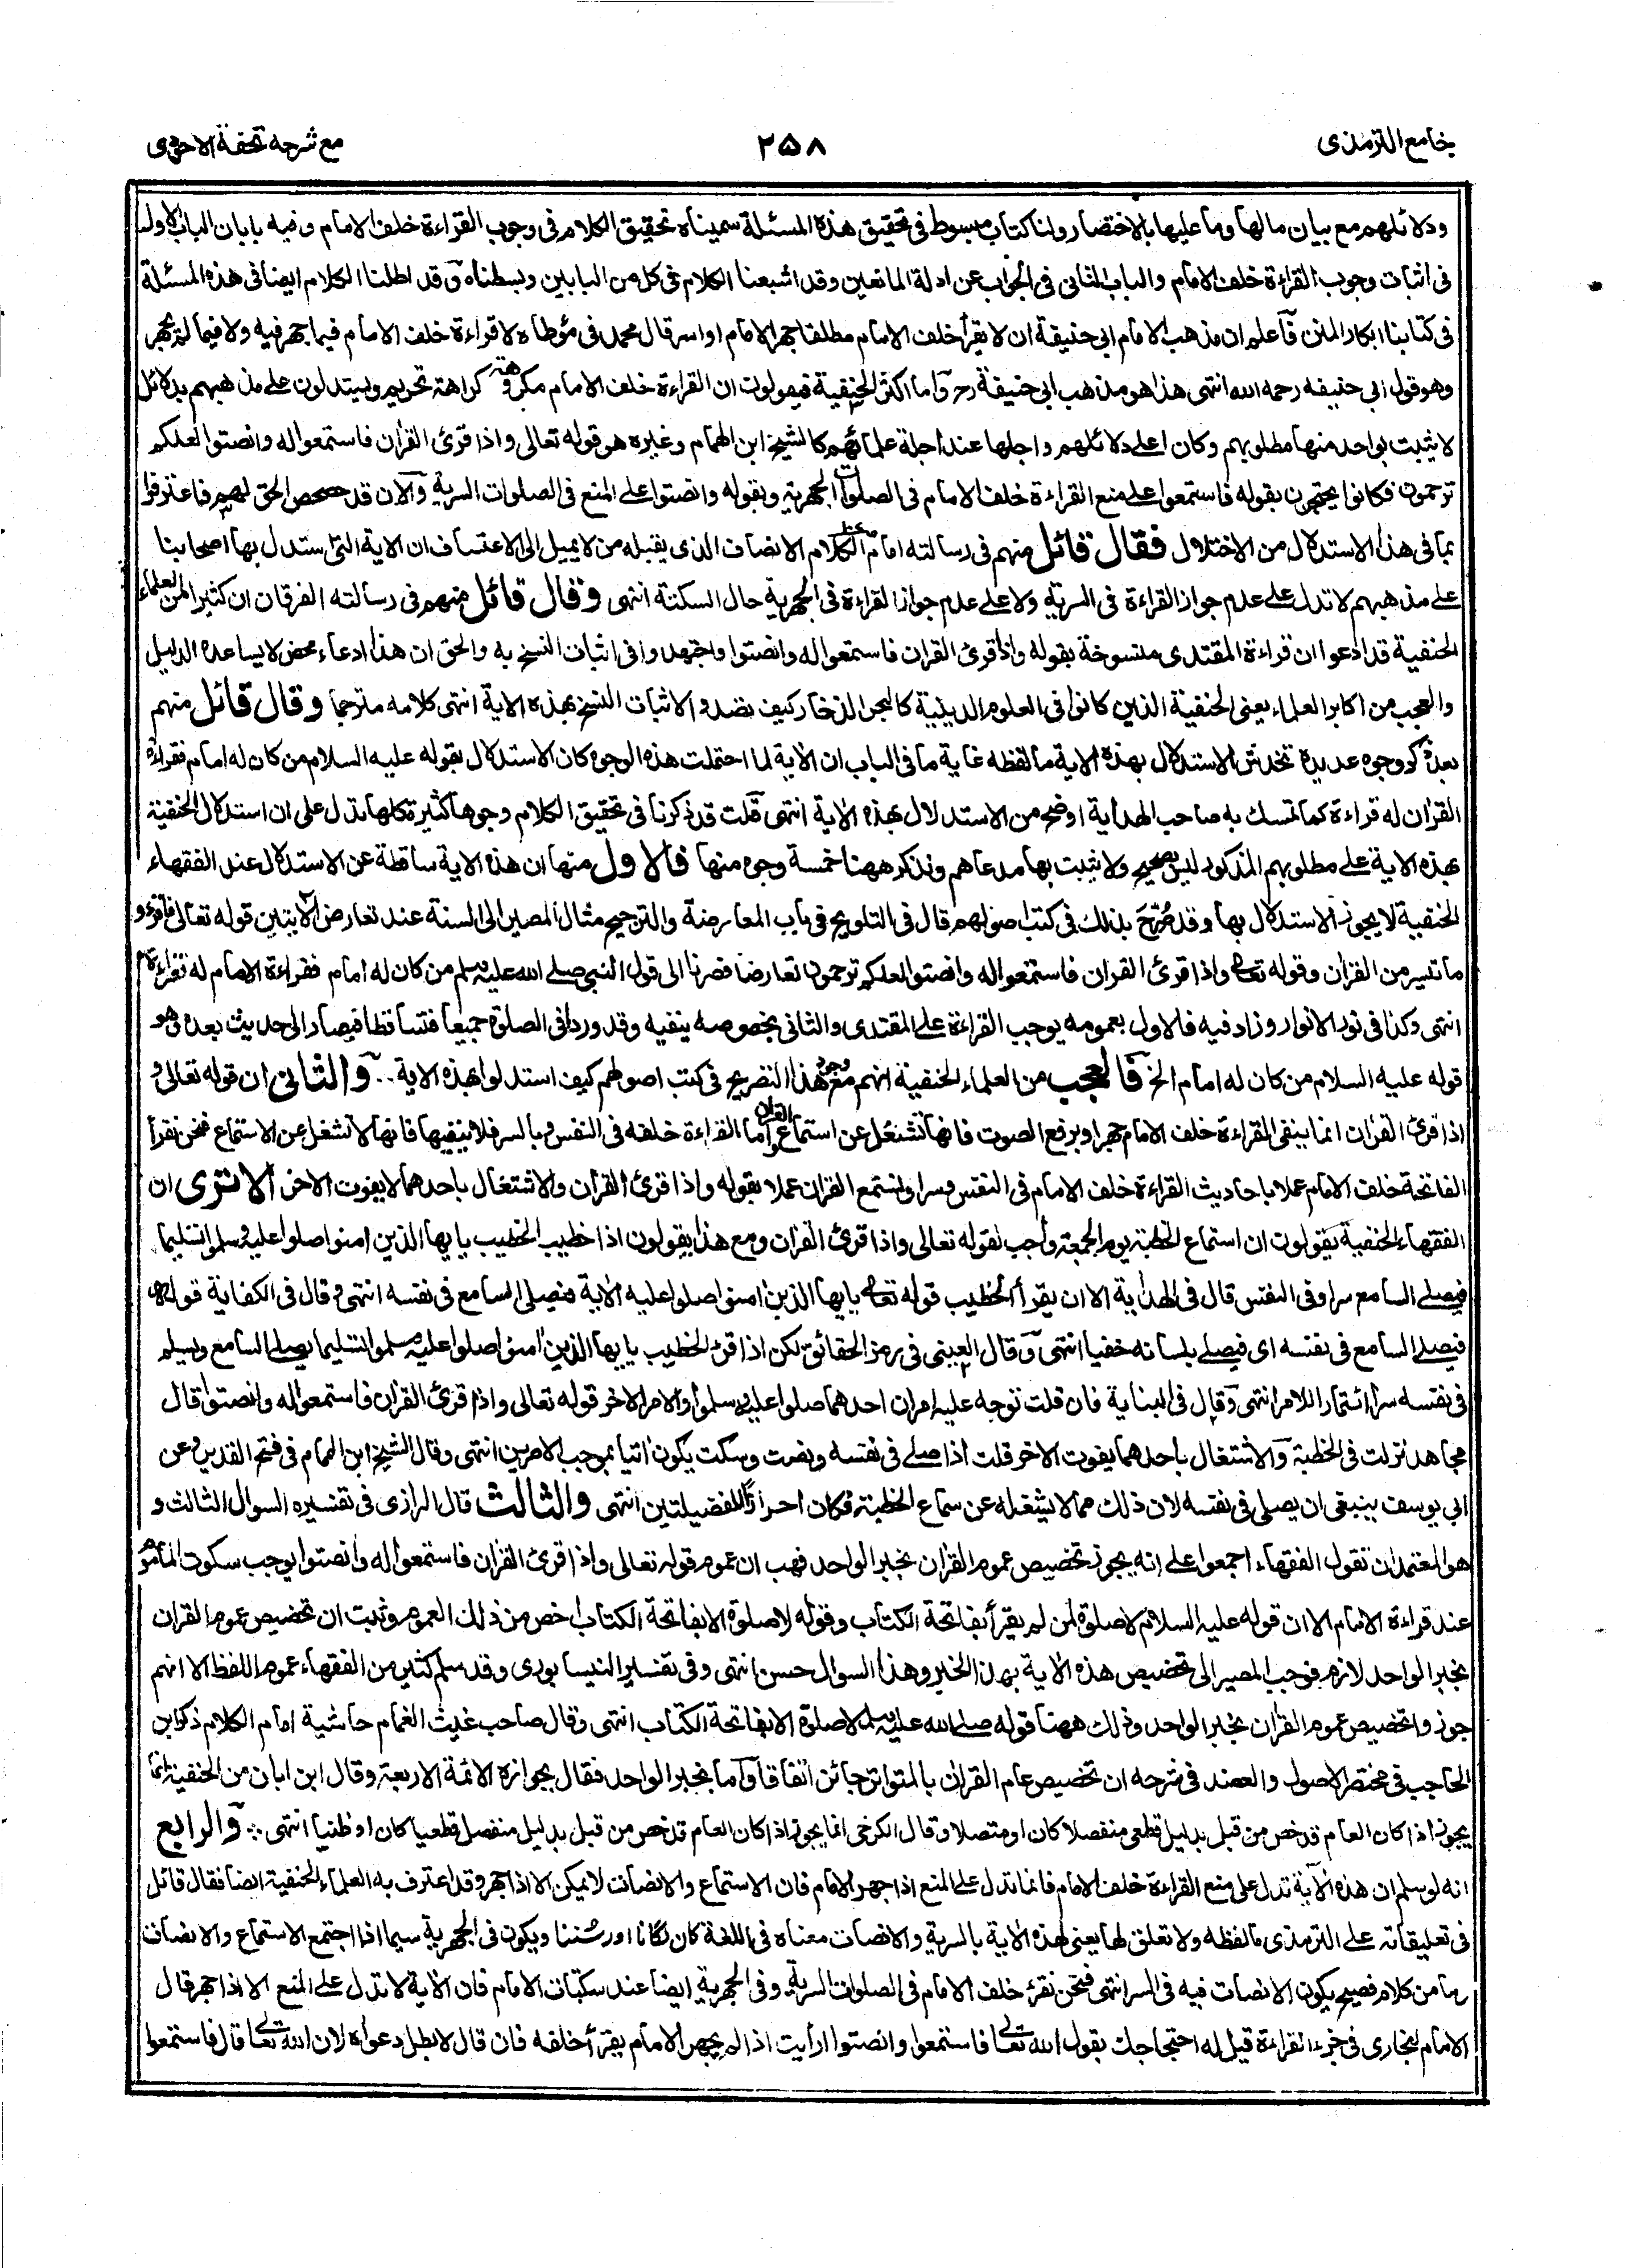 جامع الترمذی
۲۵۸
مع شرحه تحفة الاحوذی
ودلائلهم مع بيان مالها وما عليها بالاختصار ولنا كتاب مبسوط فی تحقيق هذه المسئلة سميناه تحقيق الكلام فی وجوب القراءة خلف الامام وفيه بابان الباب الاول
فی اثبات وجوب القراءة خلف الامام والباب الثانی فی الجواب عن ادلة المانعين وقد اشبعنا الكلام فی كل من البابين وبسطناه وقد اطلنا الكلام ايضا فی هذه المسئلة
فی كتابنا ابكار المنن فآعلم ان مذهب الامام ابی حنيفة ان لا يقرأ خلف الامام مطلقا جهر الامام او اسر قال محمد فی مؤطاه لا قراءة خلف الامام فيما جهر فيه ولا فيما لم يجهر
وهو قول ابی حنيفه رحمه الله انتهى هذا هو مذهب ابی حنيفة رح وآما اكثر الحنيفية فيقولون ان القراءة خلف الامام مكروهة كراهة تحريم ويستدلون على مذهبهم بدلائل
لا يثبت بواحد منها مطلوبهم وكان اعلى دلائلهم واجلها عند اجلة علمائهم كالشيخ ابن الهمام وغيره هو قوله تعالى واذا قرئ القران فاستمعوا له وانصتوا لعلكم
ترحمون فكانوا يحتجون بقوله فاستمعوا على منع القراءة خلف الامام فی الصلوات الجهرية وبقوله وانصتوا على المنع فی الصلوات السرية وآلان قد حصحص الحق لهم فاعترفوا
بما فی هذا الاستدلال من الاختلال فقال قائل منهم فی رسالته امام الكلام الانصاف الذی يقبله من لا يميل الى الاعتساف ان الاية التی استدل بها اصحابنا
على مذهبهم لا تدل على عدم جواز القراءة فی السرية ولا على عدم جواز القراءة فی الجهرية حال السكتة انتهى وقال قائل منهم فی رسالته الفرقان ان كثيرا من العلماء
الحنفية قد ادعوا ان قراءة المقتدی منسوخة بقوله واذا قرئ القران فاستمعوا له وانصتوا واجتهدوا فی اثبات النسخ به والحق ان هذا ادعاء محض لا يساعده الدليل
والعجب من اكابر العلماء يعنی الحنفية الذين كانوا فی العلوم الدينية كالبحر الذخار كيف تصدوا لاثبات النسخ بهذه الاية انتهى كلامه مترجما وقال قائل منهم
بعد ذكر وجوه عديدة تخدش الاستدلال بهذه الاية ما لفظه غاية ما فی الباب ان الاية لما احتملت هذه الوجوه كان الاستدلال بقوله عليه السلام من كان له امام فقراءة
القران له قراءة كما تمسك به صاحب الهداية اوضح من الاستدلال بهذه الاية انتهى قلت قد ذكرنا فی تحقيق الكلام وجوها كثيرة كلها تدل على ان استدلال الحنفية
بهذه الاية على مطلوبهم المذكور ليس بصحيح ولا يثبت بها مدعاهم ونذكر ههنا خمسة وجوه منها فالاول منها ان هذه الاية ساقطة عن الاستدلال عند الفقهاء
الحنفية لا يجوز الاستدلال بها وقد صُرّحَ بذلك فی كتب اصولهم قال فی التلويح فی باب المعارضة والترجيح مثال المصير الى السنة عند تعارض الايتين قوله تعالى فاقرءوا
ما تيسر من القران وقوله تعالى واذا قرئ القران فاستمعوا له وانصتوا لعلكم ترحمون تعارضا فصرنا الى قول النبی صلى الله عليه وسلم من كان له امام فقراءة الامام له قراءة
انتهى وكذا فی نور الانوار وزاد فيه فالاول بعمومه يوجب القراءة على المقتدی والثانی بخصوصه ينفيه وقد وردا فی الصلوة جميعا فتساقطا فيصار الى حديث بعده وهو
قوله عليه السلام من كان له امام الخ فآلعجب من العلماء الحنفية انهم مع وجود هذا التصريح فی كتب اصولهم كيف استدلوا بهذه الاية .. وآلثانی ان قوله تعالى و
اذا قرئ القران انما ينفی القراءة خلف الامام جهرا وبرفع الصوت فانها تشتغل عن استماع القران وآما القراءة خلفه فی النفس وبالسر فلا ينفيها فانها لا تشغل عن الاستماع فنحن نقرأ
الفاتحة خلف الامام عملا باحاديث القراءة خلف الامام فی النفس وسرا ونستمع القران عملا بقوله واذا قرئ القران والاشتغال باحدهما لا يفوت الاخر الا ترى ان
الفقهاء الحنفية يقولون ان استماع الخطبة يوم الجمعة واجب لقوله تعالى واذا قرئ القران ومع هذا يقولون اذا خطب الخطيب يايها الذين امنوا صلوا عليه وسلموا تسليما
فيصلی السامع سرا وفی النفس قال فی الهداية الا ان يقرأ الخطيب قوله تعالى يايها الذين امنوا صلوا عليه الاية فيصلی السامع فی نفسه انتهى وقال فی الكفاية قوله
فيصلی السامع فی نفسه ای فيصلی بلسانه خفيا انتهى وقال العينی فی رمز الحقائق لكن اذا قرئ الخطيب يايها الذين امنوا صلوا عليه وسلموا تسليما يصلی السامع ويسلم
فی نفسه سرا ائتمارا للامر انتهى وقال فی البناية فان قلت توجه عليه امران احدهما صلوا عليه وسلموا والامر الاخر قوله تعالى واذا قرئ القران فاستمعوا له وانصتوا قال
مجاهد نزلت فی الخطبة والاشتغال باحدهما يفوت الاخر قلت اذا صلى فی نفسه ونصت وسكت يكون اتيا بموجب الامرين انتهى وقال الشيخ ابن الهمام فی فتح القدير وعن
ابی يوسف ينبغی ان يصلی فی نفسه لان ذلك مما لا يشغله عن سماع الخطبة فكان احرازا للفضيلتين انتهى والثالث قال الرازی فی تفسيره السوال الثالث و
هو المعتمد ان نقول الفقهاء اجمعوا على انه يجوز تخصيص عموم القران بخبر الواحد فهب ان عموم قوله تعالى واذا قرئ القران فاستمعوا له وانصتوا يوجب سكوت الماموم
عند قراءة الامام الا ان قوله عليه السلام لا صلوة لمن لم يقرأ بفاتحة الكتاب وقوله لا صلوة الا بفاتحة الكتاب اخص من ذلك العموم وثبت ان تخصيص عموم القران
بخبر الواحد لازم فوجب المصير الى تخصيص هذه الاية بهذا الخبر وهذا السوال حسن انتهى وفی تفسير النيسابوری وقد سلم كثير من الفقهاء عموم اللفظ الا انهم
جوزوا تخصيص عموم القران بخبر الواحد وذلك ههنا قوله صلى الله عليه وسلم لا صلوة الا بفاتحة الكتاب انتهى وقال صاحب غيث الغمام حاشية امام الكلام ذكر ابن
الحاجب فی مختصر الاصول والعضد فی شرحه ان تخصيص عام القران بالمتواتر جائز اتفاقا وآما بخبر الواحد فقال بجوازه الائمة الاربعة وقال ابن ابان من الحنفية انما
يجوز اذا كان العام قد خص من قبل بدليل قطعی منفصلا كان او متصلا وقال الكرخی انما يجوز اذا كان العام قد خص من قبل بدليل منفصل قطعيا كان او ظنيا انتهى .. وآلرابع
انه لو سلم ان هذه الآية تدل على منع القراءة خلف الامام فانما تدل على المنع اذا جهر الامام فان الاستماع والانصات لا يمكن الا اذا جهر وقد اعترف به العلماء الحنفية ايضا فقال قائل
فی تعليقاته على الترمذی ما لفظه ولا تعلق لها يعنی لهذه الاية بالسرية والانصات معناه فی اللغة كان لگانا اور سننا ويكون فی الجهرية سيما اذا اجتمع الاستماع والانصات
وما من كلام فصيح يكون الانصات فيه فی السر انتهى فنحن نقرء خلف الامام فی الصلوات السرية وفی الجهرية ايضا عند سكتات الامام فان الاية لا تدل على المنع الا اذا جهر قال
الامام البخاری فی جزء القراءة قيل له احتجاجك بقول الله تعالى فاستمعوا وانصتوا ارأيت اذا لم يجهر الامام يقرأ خلفه فان قال لا بطل دعواه لان الله تعالى قال فاستمعوا